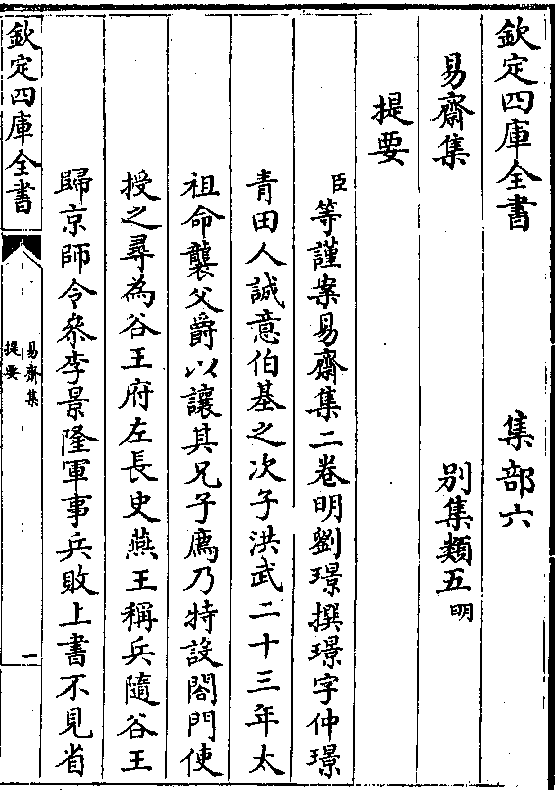 欽定四庫全書 集部六
易齋集 別集類五明
提要
臣等謹案易齋集二卷明劉璟撰璟字仲璟
青田人誠意伯基之次子洪武二十三年太
祖命襲父爵以讓其兄子廌乃特設閤門使
授之尋為谷王府左長史燕王稱兵隨谷王
歸京師令叅李景隆軍事兵敗上書不見省
欽定四庫全書
易齋集
提要
一